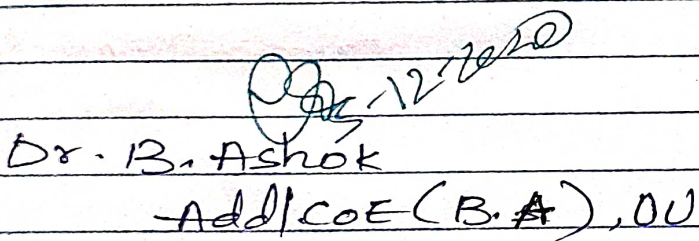 5-12-2020
Dr. B. Ashok
Addl COE (B.A), OU